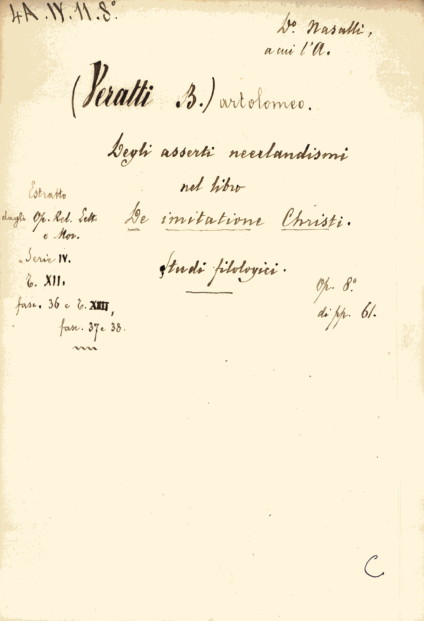 4A.IV.11.8°
D.° Nasalli,
a cui l'A.
(Veratti B.) artolomeo.
Degli asserti neerlandismi
nel libro
De imitatione Christi.
Studi filologici.
Estratto
dagli Op. Rel. Lett.
e Mor.
Serie IV.
T. XII.
fasc. 36 e T. XIII,
fasc. 37 e 38.
Op. 8°
di pp. 61.
C